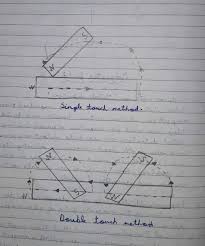 S
N
N
Single touch method.
N
S
S
N
N
Double touch method